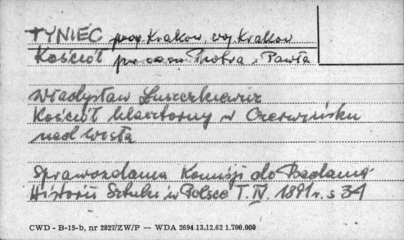 TYNIEC pow. Kraków, woj. Kraków
Kościół par. śś. Piotra i Pawła
Władysław Łuszczkiewicz
Kościół klasztorny w Czerwińsku
nad Wisłą
Sprawozdania Komisji do Badania
Historii Sztuki w Polsce T. IV. 1891 r. s 34
CWD - B-15-b, nr 2827/ZW/P — WDA 2694 13.12.62 1.700.000